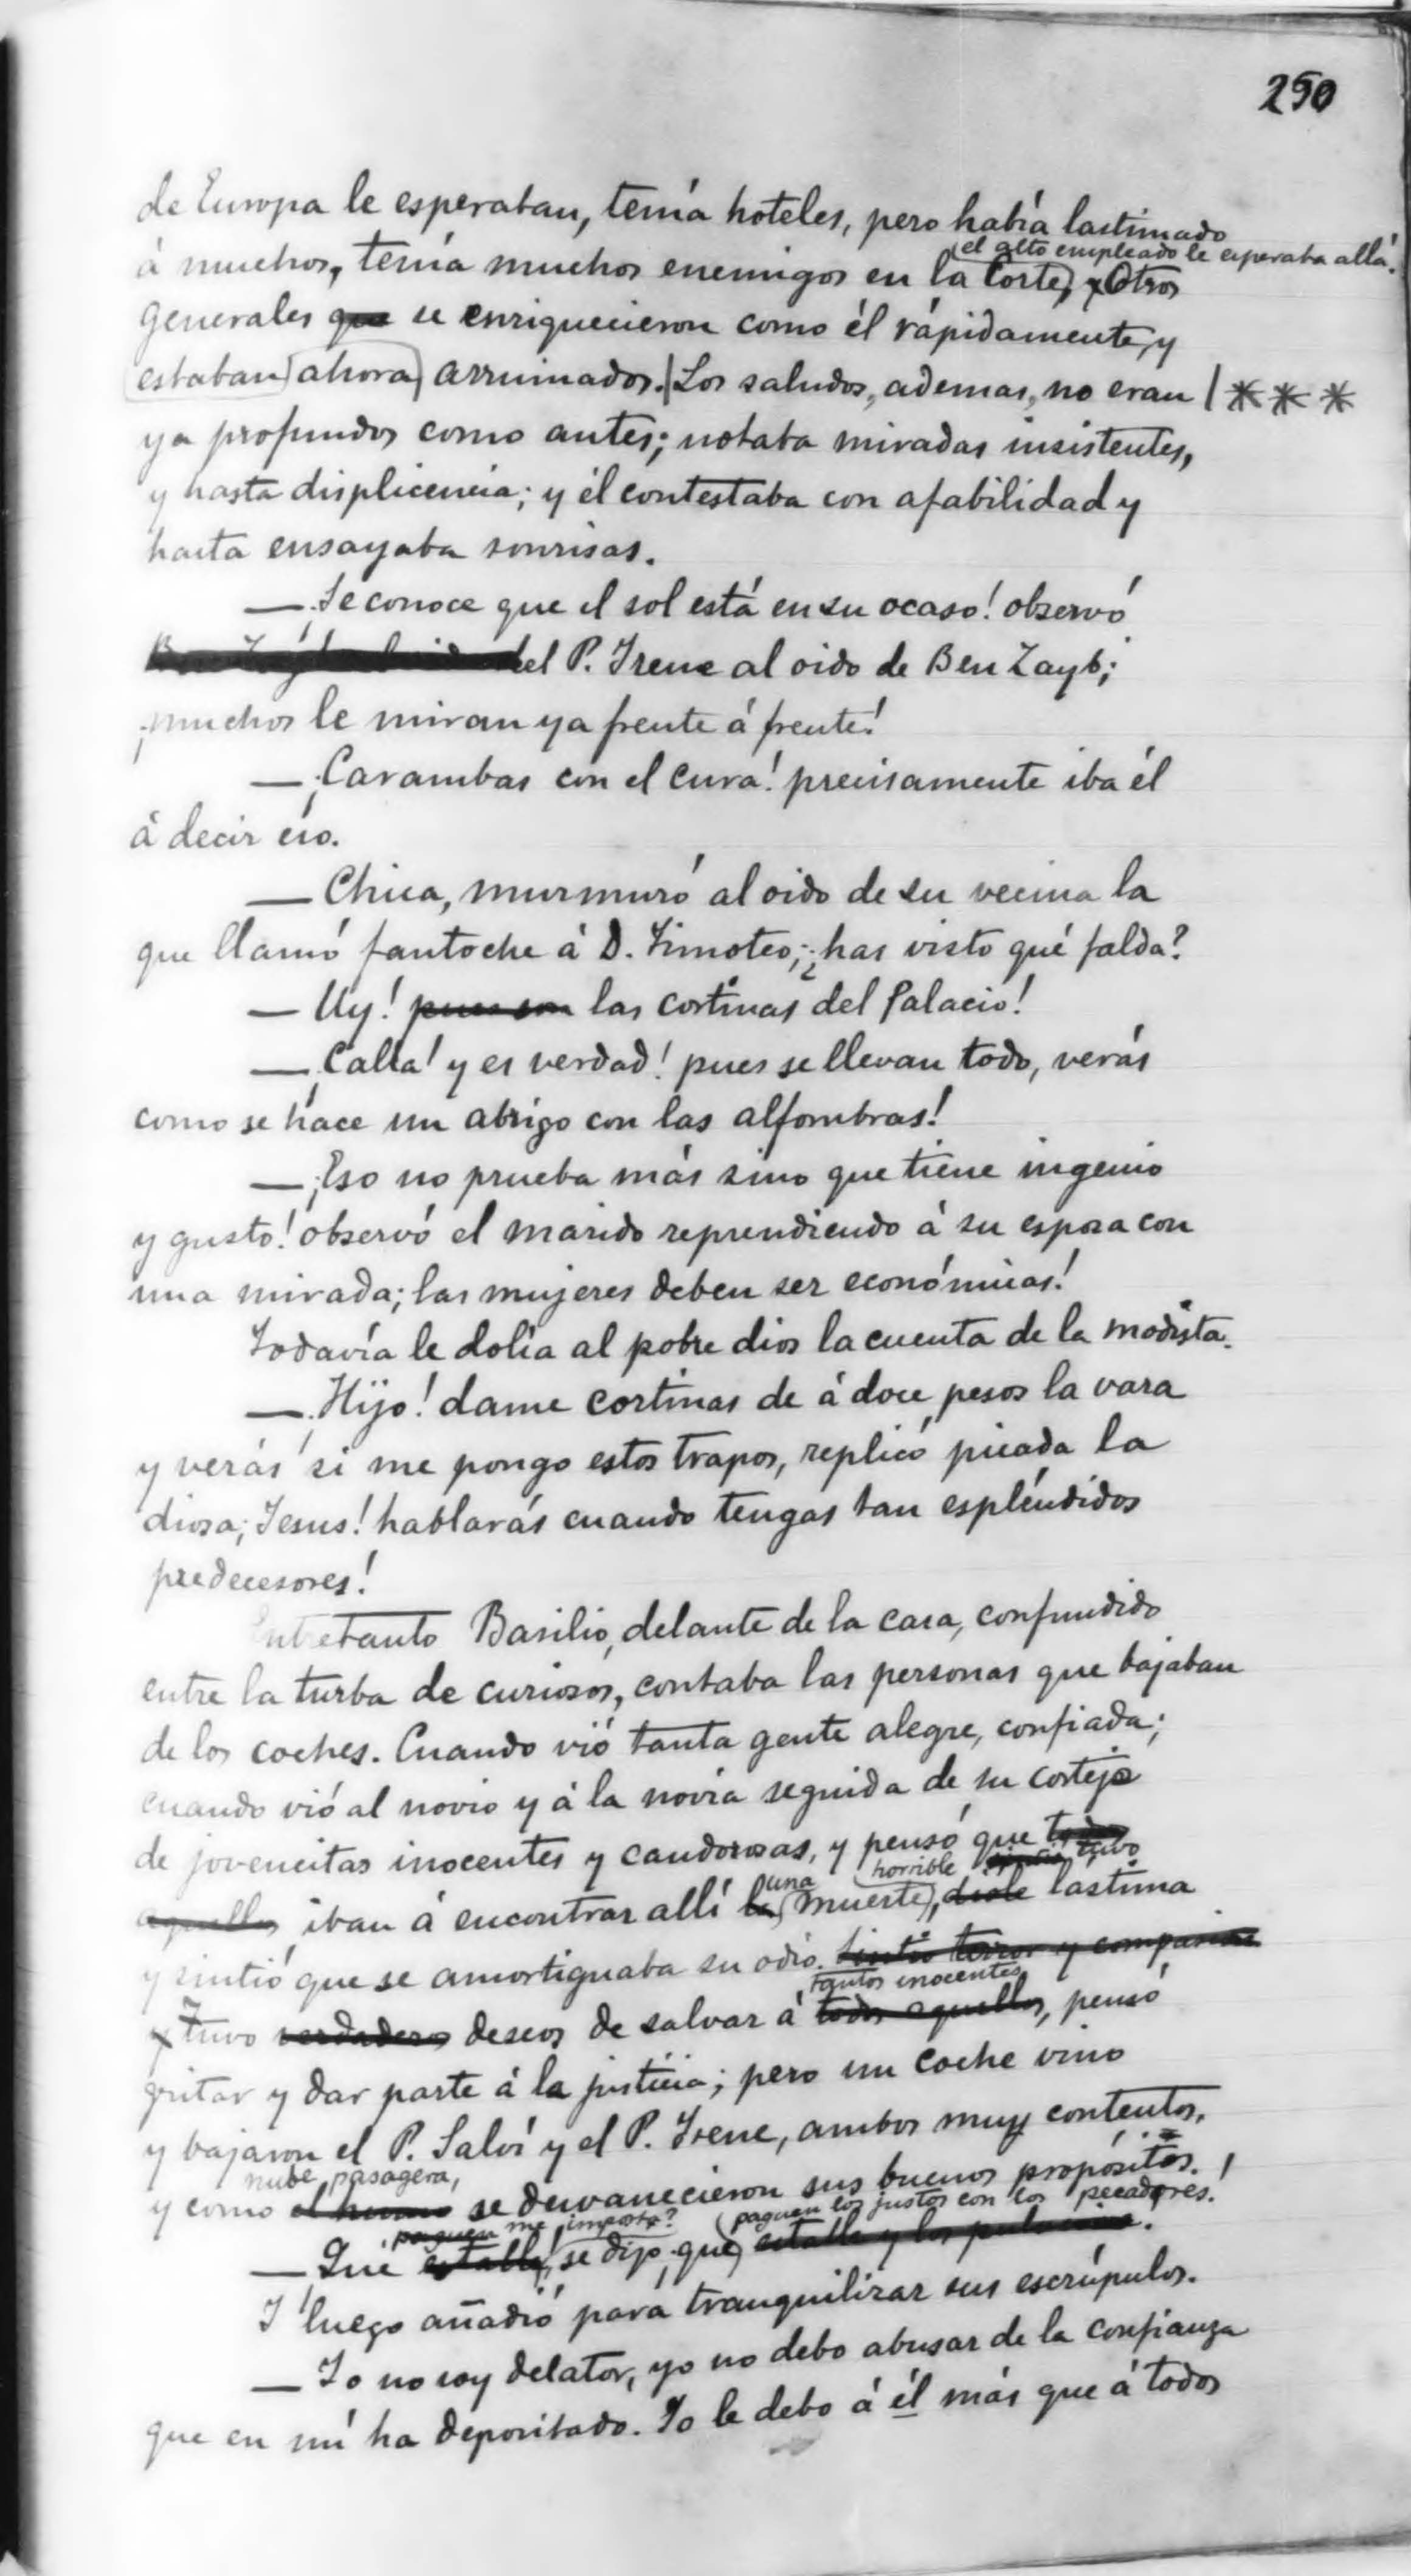 250
de Europa le esperaban, tenía hoteles, pero había lastimado
el alto empleado le esperaba allá.
á muchos, tenía muchos enemigos en la Corte, y Otros
generales que se enriquecieron como él rápidamente, y
estaban ahora arruinados. | Los saludos, ademas, no eran | ***
ya profundos como antes; notaba miradas insistentes,
y hasta displicencia; y él contestaba con afabilidad y
hasta ensayaba sonrisas.
— ¡Se conoce que el sol está en su ocaso! observó
el P. Irene al oido de Ben Zayb;
¡muchos le miran ya frente á frente!
— ¡Carambas con el cura! precisamente iba él
á decir eso.
— Chica, murmuró al oido de su vecina la
que llamó fantoche á D. Timoteo; ¿has visto qué falda?
— Uy! pues son las cortinas del Palacio!
— ¡Calla! y es verdad! pues se llevan todo, verás
como se hace un abrigo con las alfombras!
— ¡Eso no prueba más sino que tiene ingenio
y gusto! observó el marido reprendiendo á su esposa con
una mirada; las mujeres deben ser económicas!
Todavía le dolía al pobre dios la cuenta de la modista.
— ¡Hijo! dame cortinas de á doce pesos la vara
y verás si me pongo estos trapos, replicó picada la
diosa; Jesus! hablarás cuando tengas tan espléndidos
predecesores!
Entretanto Basilio, delante de la casa, confundido
entre la turba de curiosos, contaba las personas que bajaban
de los coches. Cuando vió tanta gente alegre, confiada;
cuando vió al novio y á la novia seguida de su cortejo
de jovencitas inocentes y candorosas, y pensó que todos
una horrible sintió tuvo
aquellos iban á encontrar allí la muerte, dióle lastima
y sintió que se amortiguaba su odio. Sintió terror y compasion
tantos inocentes
y Tuvo verdaderos deseos de salvar á todos aquellos, pensó
gritar y dar parte á la justicia; pero un coche vino
y bajaron el P. Salví y el P. Irene, ambos muy contentos,
nube pasagera,
y como el humo se desvanecieron sus buenos propósitos.
paguen me importa? paguen los justos con los pecadores!
— ¡Qué estalle, se dijo, que estalle y los pulverice!
Y luego añadió para tranquilizar sus escrúpulos.
— Yo no soy delator, yo no debo abusar de la confianza
que en mí ha depositado. Yo le debo á él más que á todos